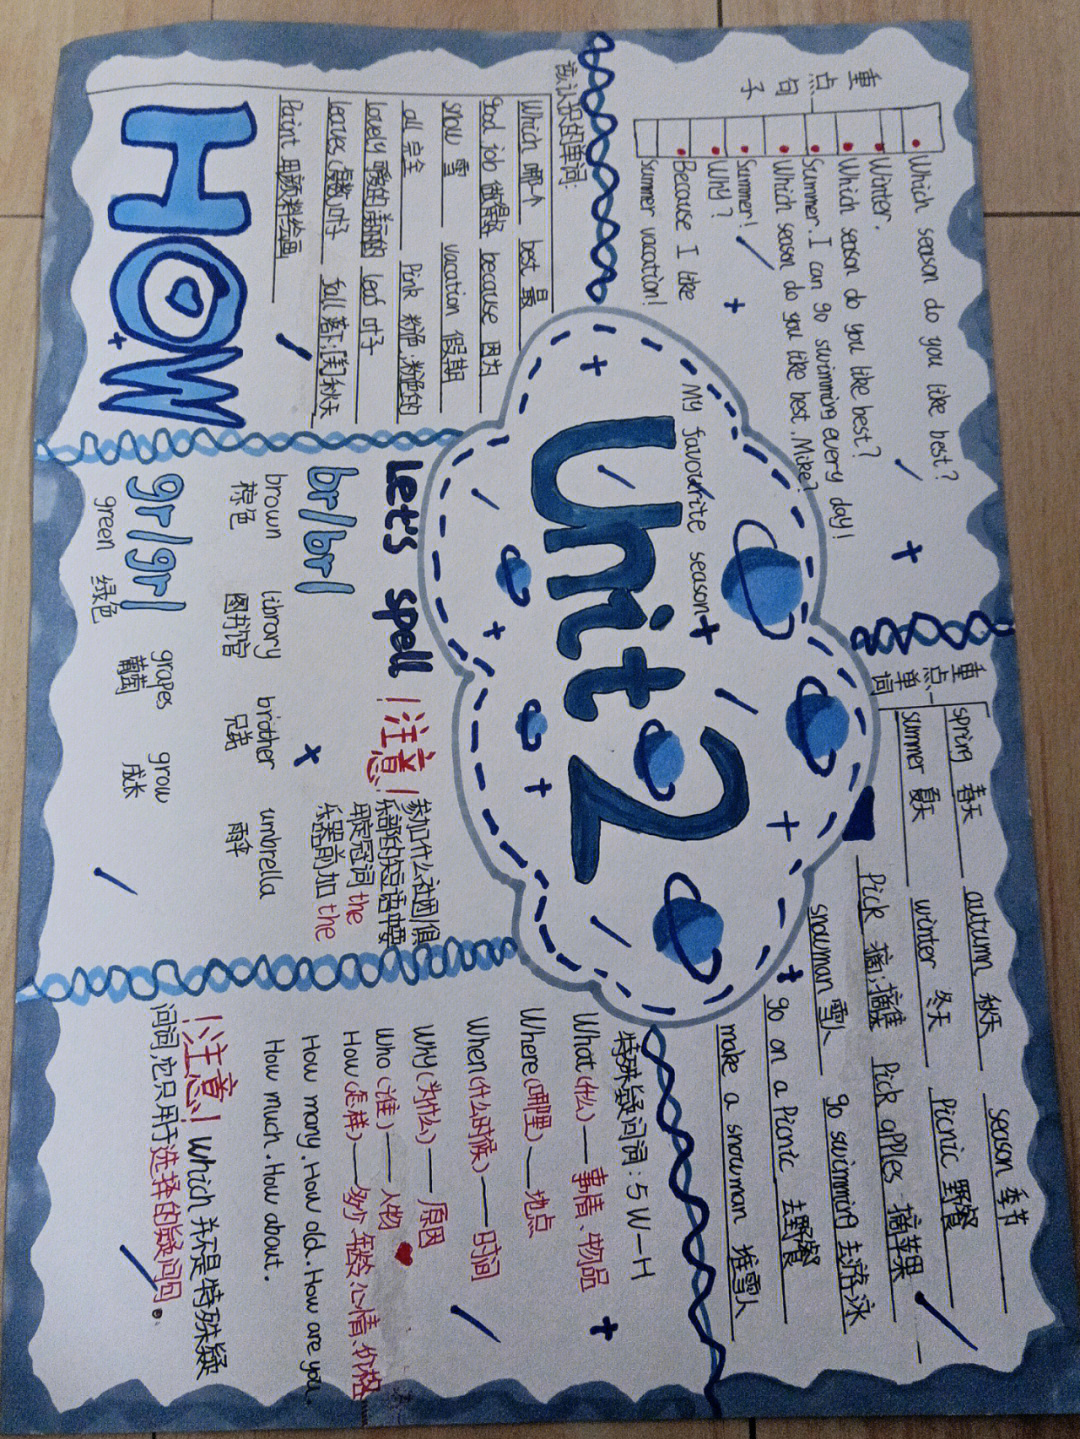 重点句子
Which season do you like best?
Winter.
Which season do you like best?
Summer. I can go swimming every day!
Which season do you like best, Mike?
Summer!
Why?
Because I like
Summer vacation!
重点单词
season 季节
spring 春天 autumn 秋天 Picnic 野餐
summer 夏天 winter 冬天 Pick apples 摘苹果
Pick 摘;摘集 go swimming 去游泳
snowman 雪人
go on a Picnic 去野餐
make a snowman 堆雪人
My favourite season
Unit 2
该认识的单词:
Which 哪个 best 最
good job 做得好 because 因为
snow 雪 vacation 假期
all 完全 Pink 粉色;粉色的
lovely 可爱的;美丽的 leaf 叶子
leaves(复数)叶子 fall 落下;[美]秋天
Paint 用颜料绘画
HOW
Let's spell
br/br/
brown library brother umbrella
棕色 图书馆 兄弟 雨伞
gr/gr/
grapes grow
green 绿色 葡萄 成长
!注意!
参加什么社团/俱
乐部的短语中要
用定冠词 the
乐器前加 the
特殊疑问词:5W—H
What(什么)——事情、物品
Where(哪里)——地点
When(什么时候)——时间
Why(为什么)——原因
Who(谁)——人物
How(怎样)——多少、年龄、心情、价格
How many.How old.How are you.
How much.How about.
!注意!Which 并不是特殊疑
问词,它只用于选择的疑问句。